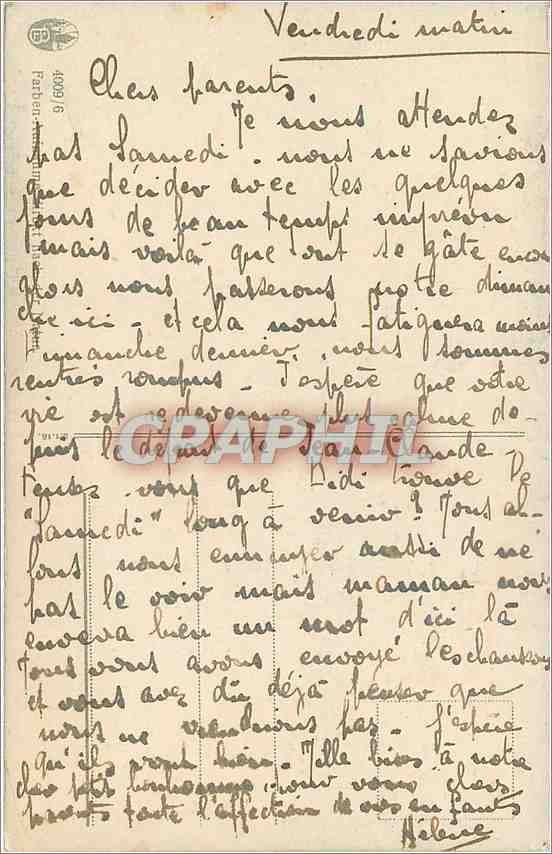 Vendredi matin
Chers parents,
Ne nous attendez
pas Samedi. nous ne savions
que décider avec les quelques
jours de beau temps imprévu
mais voilà que tout se gâte encore
alors nous passerons notre diman
che ici. et cela nous fatiguera moins
Dimanche dernier, nous sommes
rentrés rompus. J'espère que votre
vie est redevenue plus calme de-
puis le départ de Jean-Claude.
Pensez vous que Didi trouve le
"Samedi" long à venir? Nous al-
lons nous ennuyer aussi de ne
pas le voir mais maman nous
enverra bien un mot d'ici là
Nous vous avons envoyé les chaussons
et vous avez dû déjà penser que
nous ne viendrions pas. J'espère
qu'ils vont bien. Mille bises à notre
cher p'tit bonhomme, pour vous chers
parents toute l'affection de vos enfants
Hélène
4009/6
GRAPHI